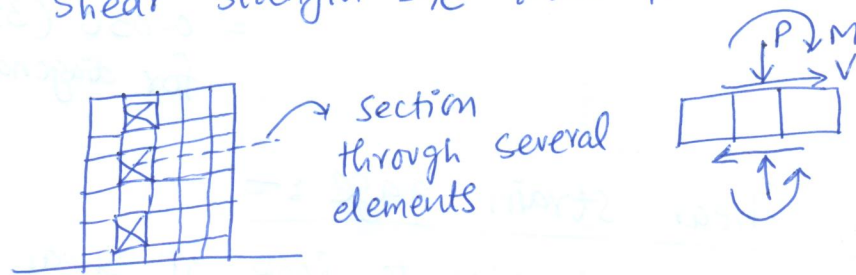 shear strength
section
through several
elements
P
M
V